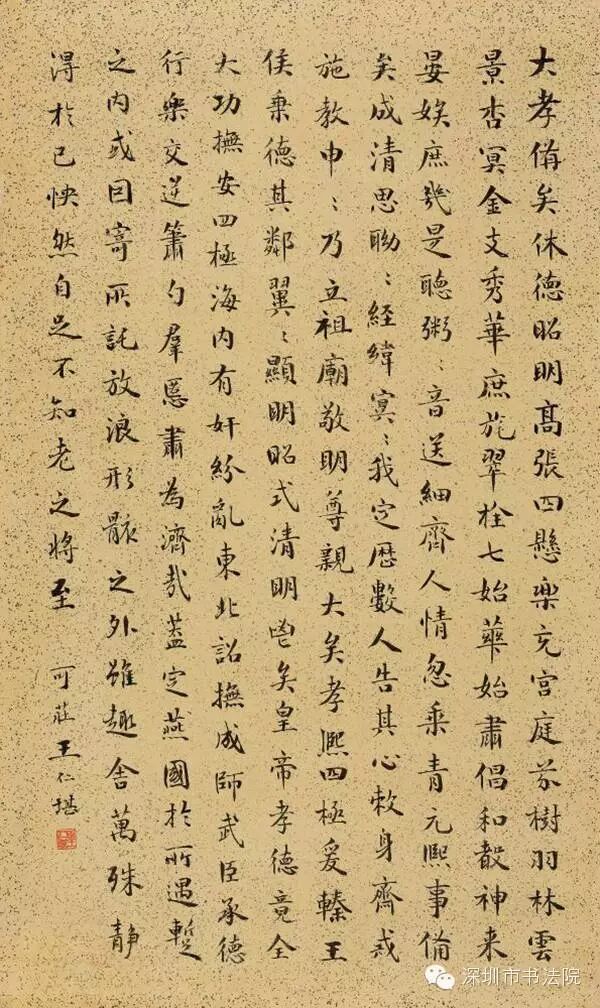 大孝備矣休德昭明高張四懸樂充宮庭芬樹羽林雲
景杳冥金支秀華庶旄翠栓七始華始肅倡和聲神来
晏娭庶幾是聽粥〻音送細齊人情忽乘青元熙事備
矣成清思眑〻經緯冥〻我定歷數人告其心敕身齊戒
施教申〻乃立祖廟敬明尊親大矣孝熙四極爰轃王
侯秉德其鄰翼〻顯明昭式清明鬯矣皇帝孝德竟全
大功撫安四極海内有奸紛亂東北詔撫成師武臣承德
行樂交逆簫勺羣慝肅為濟哉蓋定燕國於所遇蹔
之内或因寄所託放浪形骸之外雖趣舍萬殊静
得於己快然自足不知老之將至 可莊王仁堪
深圳市书法院